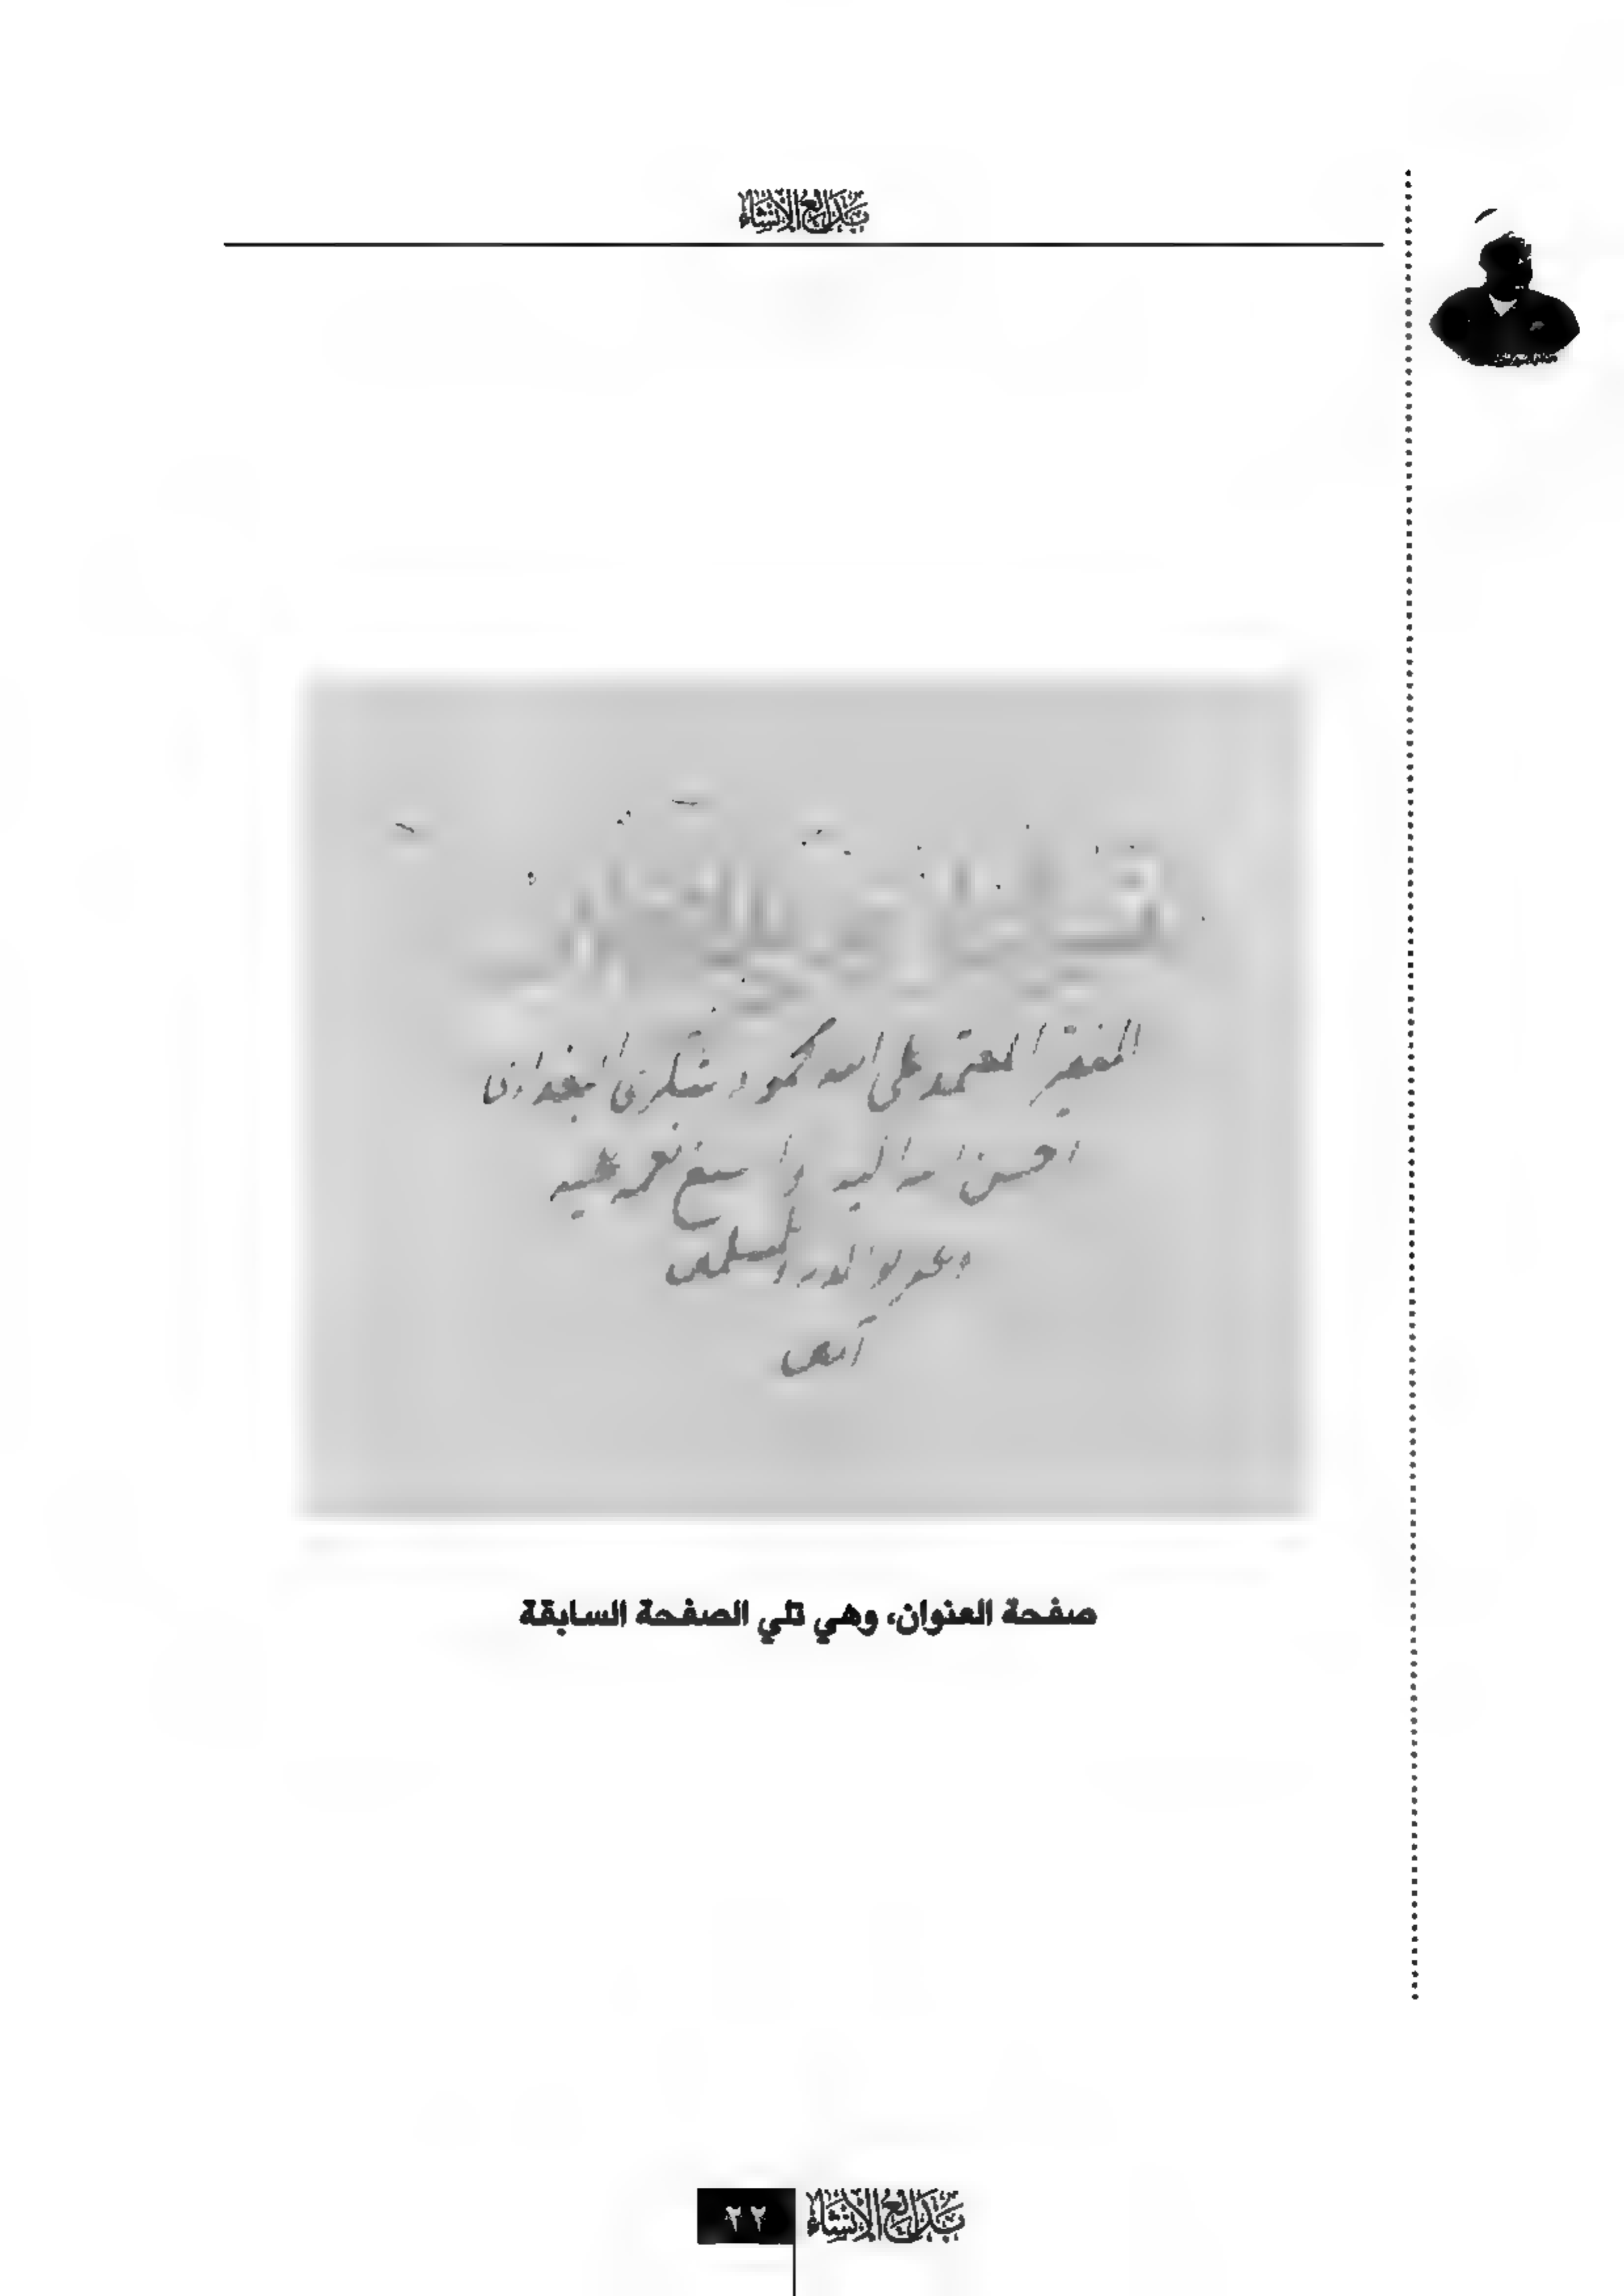 بَدَائِعُ الْإِنْشَاءِ
الفقير المعتمد على الله محمود شكري البغدادي
احسن الله اليه واسبغ نعمه عليه
وعلى والديه والمسلمين
آمين
صفحة العنوان، وهي تلي الصفحة السابقة
بَدَائِعُ الْإِنْشَاءِ
٢٢